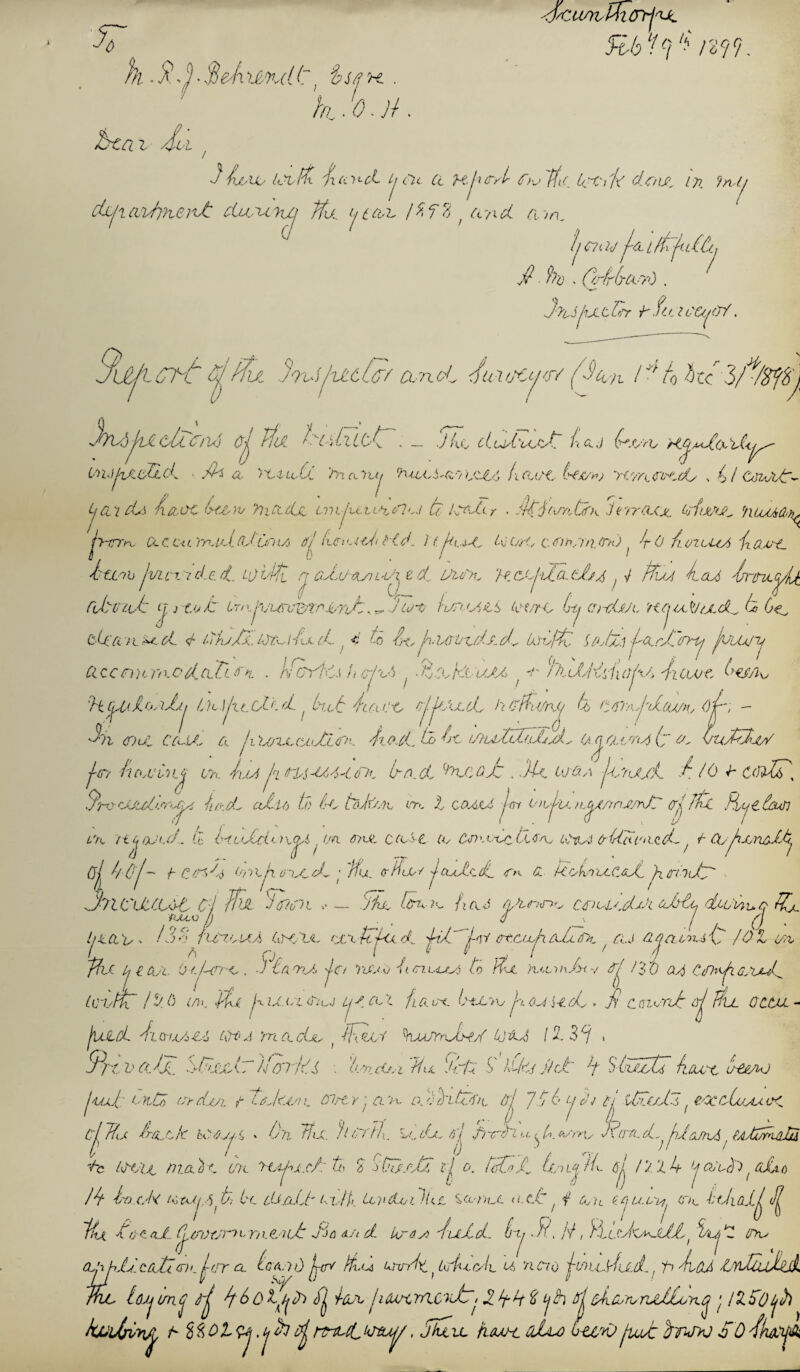 Scunthorpe
Feb 19th 1899.
To
M. R. J. Behrendt, Esqre.
M. O. H.
Dear Sir,
I here with hand you a report on the work done in my
department during the year 1898, and am
Yours faithfully
A. M. Cobban.
Inspector & Surveyor.
Report of the Inspector and Surveyor (Jan 1st to Dec 31st/1898)
Inspections of the District. — The district has been regularly
inspected. As a result many nuisances have been removed. 61 court-
yards have been made impervious to water. At Scunthorpe Terrace, where nuisance
from accumulations of household refuse were common, 40 houses have
been provided with galvanized iron receptacles, & this has brought
about great improvement. — Two houses were by order required to be
cleansed & whitewashed, & to be provided with satisfactory privy
accommodation. Workshops, Bakehouses, & Milkshops have been
regularly inspected, but have offered nothing to complain of; —
In one case a prosecution had to be instituted against a butcher
for having in his possession bad meat. He was fined £10 & costs.
Proceedings had also to be taken in 2 cases for infringement of the Bye laws
in regard to buildings, in one case a conviction was obtained, & a penalty
of 40/- & costs imposed; the other failed on a technical point.
Increase of the Town. — The town has grown considerably during the
year. 138 houses were certified fit for occupation, as against 102 in
the year before. Plans for new houses to the number of 130 as compared
with 120 in the previous year have been passed. A count of the occu-
pied houses was made, their number was 1239.
Private Street Works. Under the Prte St Wks Act 4 Streets have been
put into order & taken over; an addition of 756 yds of streets, exclusive
of the back ways. On the North side of Frodingham Road, plans, estimates
&c were made in respect to 8 Streets of a total length of 1214 yards, also
14 back ways, to be dealt with under the same act, & an equiry on behalf of
the Local Government Board was held by R. H. Bicknell, Esqr on
application for a loan for this work, which is now finished, & has entailed
the laying of 4602 sq. yds of tar pavement; 2448 yds of channelling; 1250 yds
kerbing & 8802 sq. yds of roadway. There have also been put down 50 tharfd